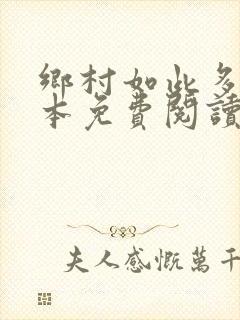 鄉村如此多
本免費閱讀
夫人感慨萬千